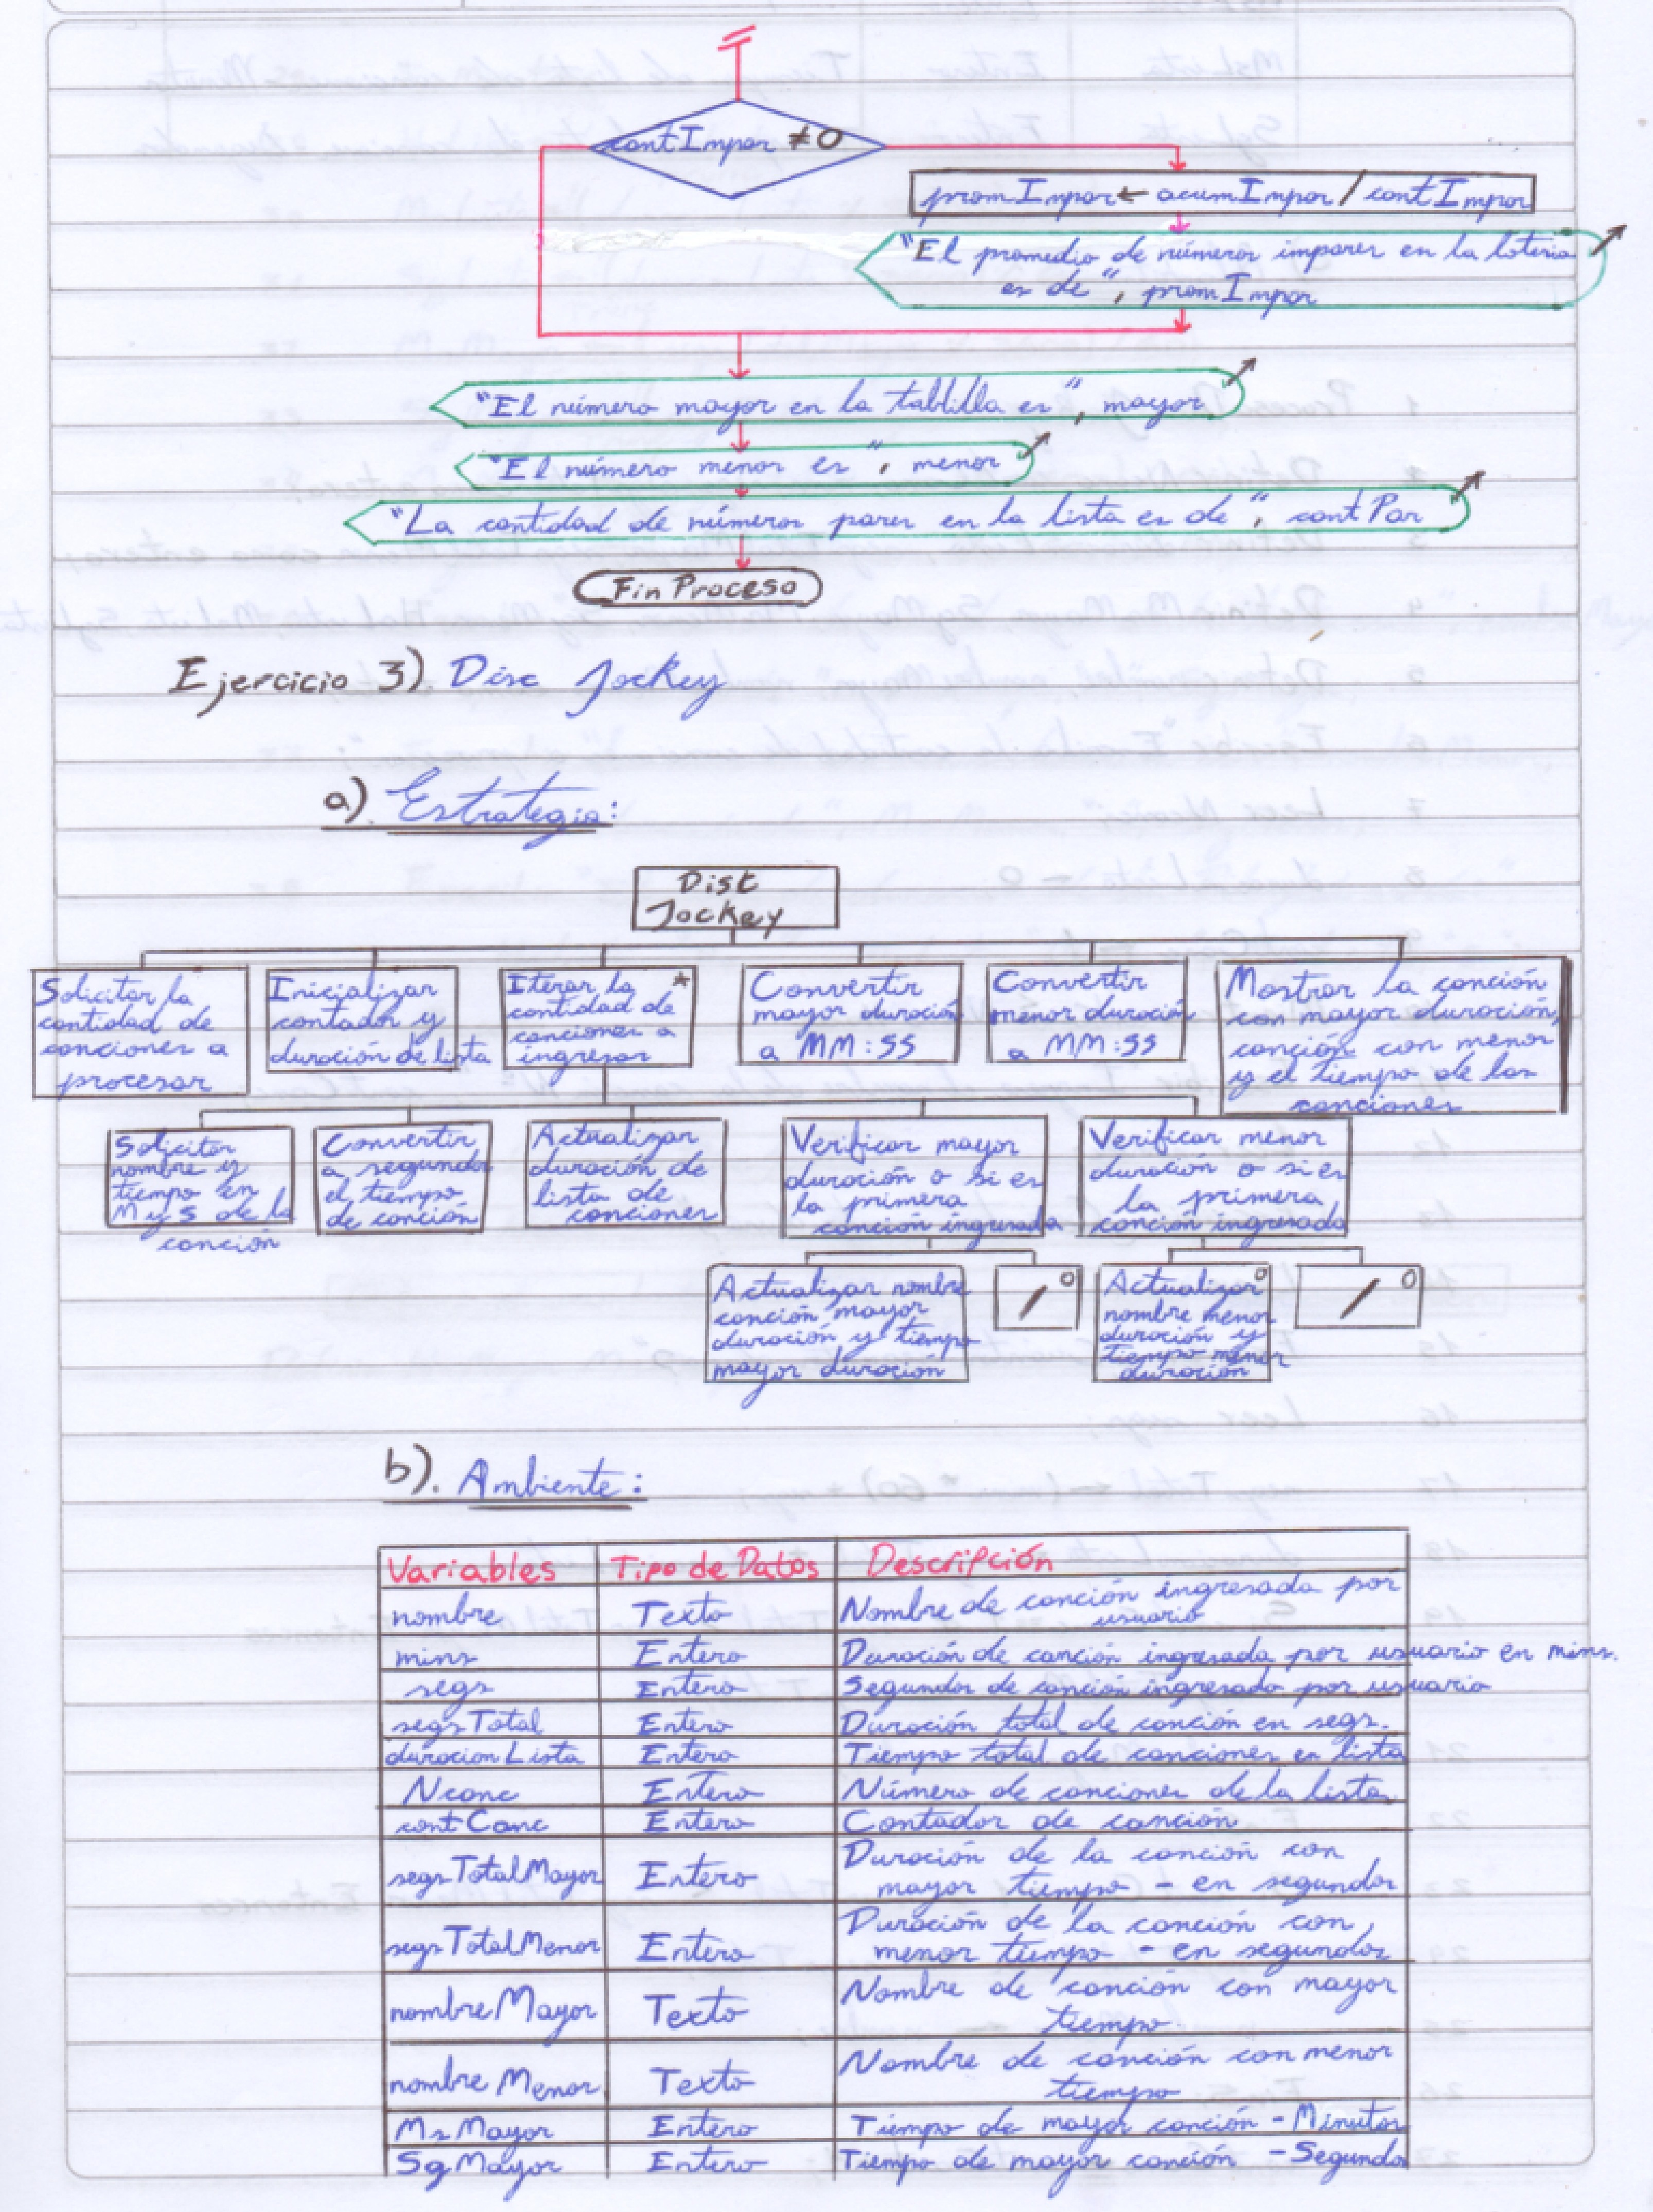 contImpar ≠ 0
promImpar ← acumImpar / contImpar
"El promedio de números impares en la lotería
es de", promImpar
"El número mayor en la tablilla es", mayor
"El número menor es", menor
"La cantidad de números pares en la lista es de", contPar
Fin Proceso
Ejercicio 3) Disc Jockey
a). Estrategia:
Dist
Jockey
Solicitar la
cantidad de
canciones a
procesar
Inicializar
contador y
duración de lista
Iterar la *
cantidad de
canciones a
ingresar
Convertir
mayor duración
a MM:SS
Convertir
menor duración
a MM:SS
Mostrar la canción
con mayor duración,
canción con menor
y el tiempo de las
canciones
Solicitar
nombre y
tiempo en
M y S de la
canción
Convertir
a segundos
el tiempo
de canción
Actualizar
duración de
lista de
canciones
Verificar mayor
duración o si es
la primera
canción ingresada
Verificar menor
duración o si es
la primera
canción ingresada
Actualizar nombre
canción mayor
duración y tiempo
mayor duración
/ o
Actualizar o
nombre menor
duración y
tiempo menor
duración
/ o
b). Ambiente:
Variables Tipo de Datos Descripción
nombre Texto Nombre de canción ingresada por
usuario
mins Entero Duración de canción ingresada por usuario en mins.
segs Entero Segundos de canción ingresado por usuario
segsTotal Entero Duración total de canción en segs.
duracionLista Entero Tiempo total de canciones en lista
Nconc Entero Número de canciones de la lista
contCanc Entero Contador de canción
segsTotalMayor Entero Duración de la canción con
mayor tiempo - en segundos
segsTotalMenor Entero Duración de la canción con
menor tiempo - en segundos
nombreMayor Texto Nombre de canción con mayor
tiempo.
nombreMenor Texto Nombre de canción con menor
tiempo
MsMayor Entero Tiempo de mayor canción - Minutos
SgMayor Entero Tiempo de mayor canción - Segundos